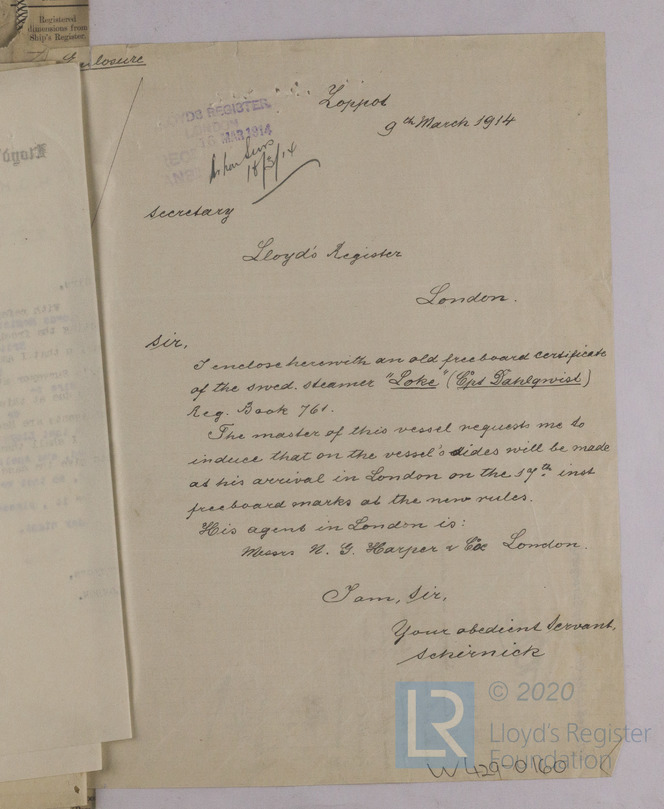 Registered
dimensions from
Ship's Register.
Enclosure
Zoppot
9th March 1914
LLOYDS REGISTER
LONDON
16 MAR 1914
18/3/14
Secretary
Lloyd's Register
London.
Sir,
I enclose herewith an old freeboard certificate
of the swed. steamer "Loke" (Cpt Dahlqwist)
Reg. Book 761.
The master of this vessel requests me to
induce that on the vessel's sides will be made
at his arrival in London on the 17th inst
freeboard marks at the new rules.
His agent in London is:
Messrs N. G. Harper & Co London.
I am, Sir,
Your obedient Servant,
Schirnick
LR
© 2020
Lloyd's Register
Foundation
W429-0160